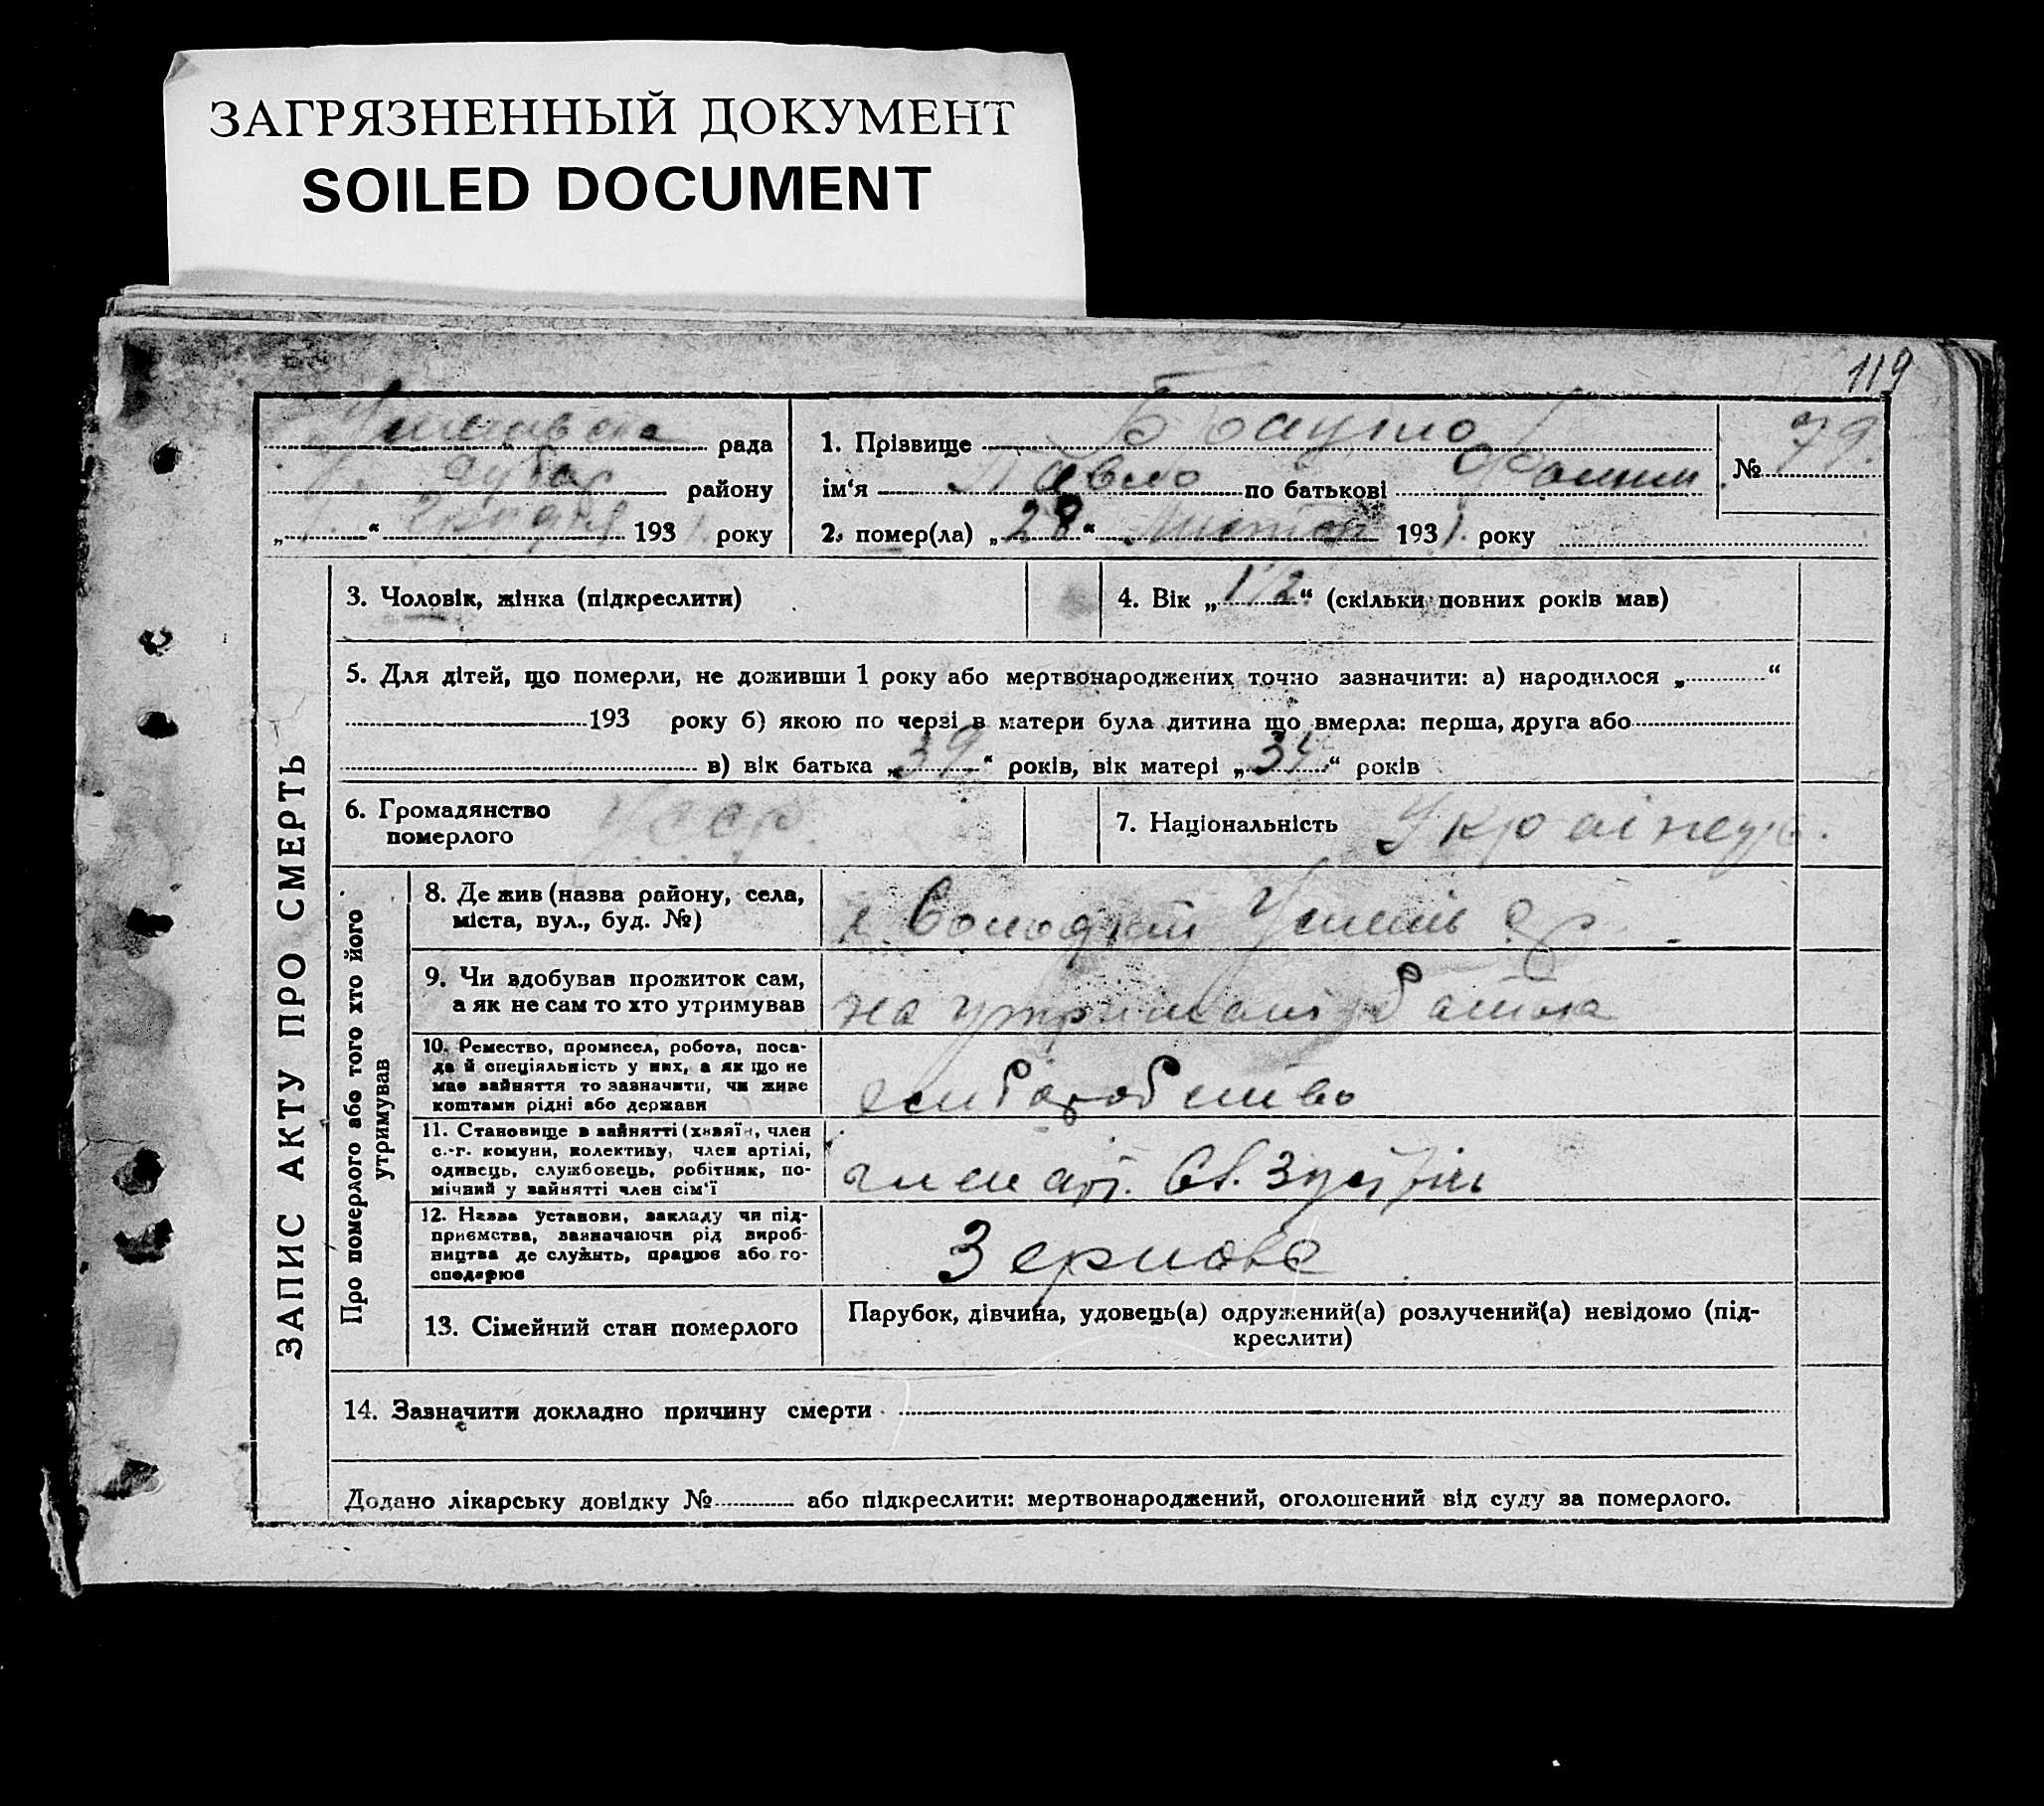 ЗАГРЯЗНЕННЫЙ ДОКУМЕНТ
SOILED DOCUMENT
119
рада
району
„ “ 193 1. року
1. Прізвище
ім‘я Павло по батькові
2. помер(ла) „28“ 1931. року
№ 79.
ЗАПИС АКТУ ПРО СМЕРТЬ
3. Чоловік, жінка (підкреслити)
4. Вік „1/2“ (скільки повних років мав)
5. Для дітей, що померли, не доживши 1 року або мертвонароджених точно зазначити: а) народилося „ “
193 року б) якою по черзі в матери була дитина що вмерла: перша, друга або
в) вік батька „39“ років, вік матері „34“ років
6. Громадянство
померлого
УССР.
7. Національність Українець.
Про померлого або того хто його
утримував
8. Де жив (назва району, села,
міста, вул., буд. №)
9. Чи здобував прожиток сам,
а як не сам то хто утримував
на утримані батька
10. Ремество, промисел, робота, поса-
да й спеціяльність у них, а як що не
має зайняття то зазначити, чи живе
коштами рідні або держави
11. Становище в зайнятті (хазяїн, член
с.-г. комуни, колективу, член артілі,
одивець, службовець, робітник, по-
мічний у зайнятті член сім‘ї
член арт.
12. Назва установи, закладу чи під-
приємства, зазначаючи рід вироб-
ництва де служить, працює або го-
сподарює
Зернове
13. Сімейний стан померлого
Парубок, дівчина, удовець(а) одружений(а) розлучений(а) невідомо (під-
креслити)
14. Зазначити докладно причину смерти
Додано лікарську довідку № або підкреслити: мертвонароджений, оголошений від суду за померлого.